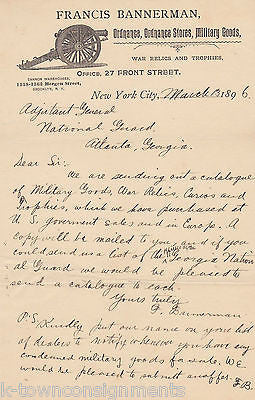 FRANCIS BANNERMAN,
Ordnance, Ordnance Stores, Military Goods,
WAR RELICS AND TROPHIES,
OFFICE, 27 FRONT STREET.
CANNON WAREHOUSES,
BROOKLYN, N.Y.
New York City, March 1896
Adjutant General
National Guard
Atlanta, Georgia.
Dear Sir:- We are sending out a catalogue
of Military Goods, War Relics, Curios and
Trophies, which we have purchased at
U S. goverment sales and in Europe. A
copy will be mailed to you, and if you
could send us a list of the Officers Georgia Nation
al Guard we would be pleased to
send a catalogue to each.
Yours truly
F. Bannerman
P.S. Kindly put our name on your list
of dealers to notify whenever you have any
condemned military goods for sale. We
would be pleased to submit an offer. F.B.
k-townconsignments